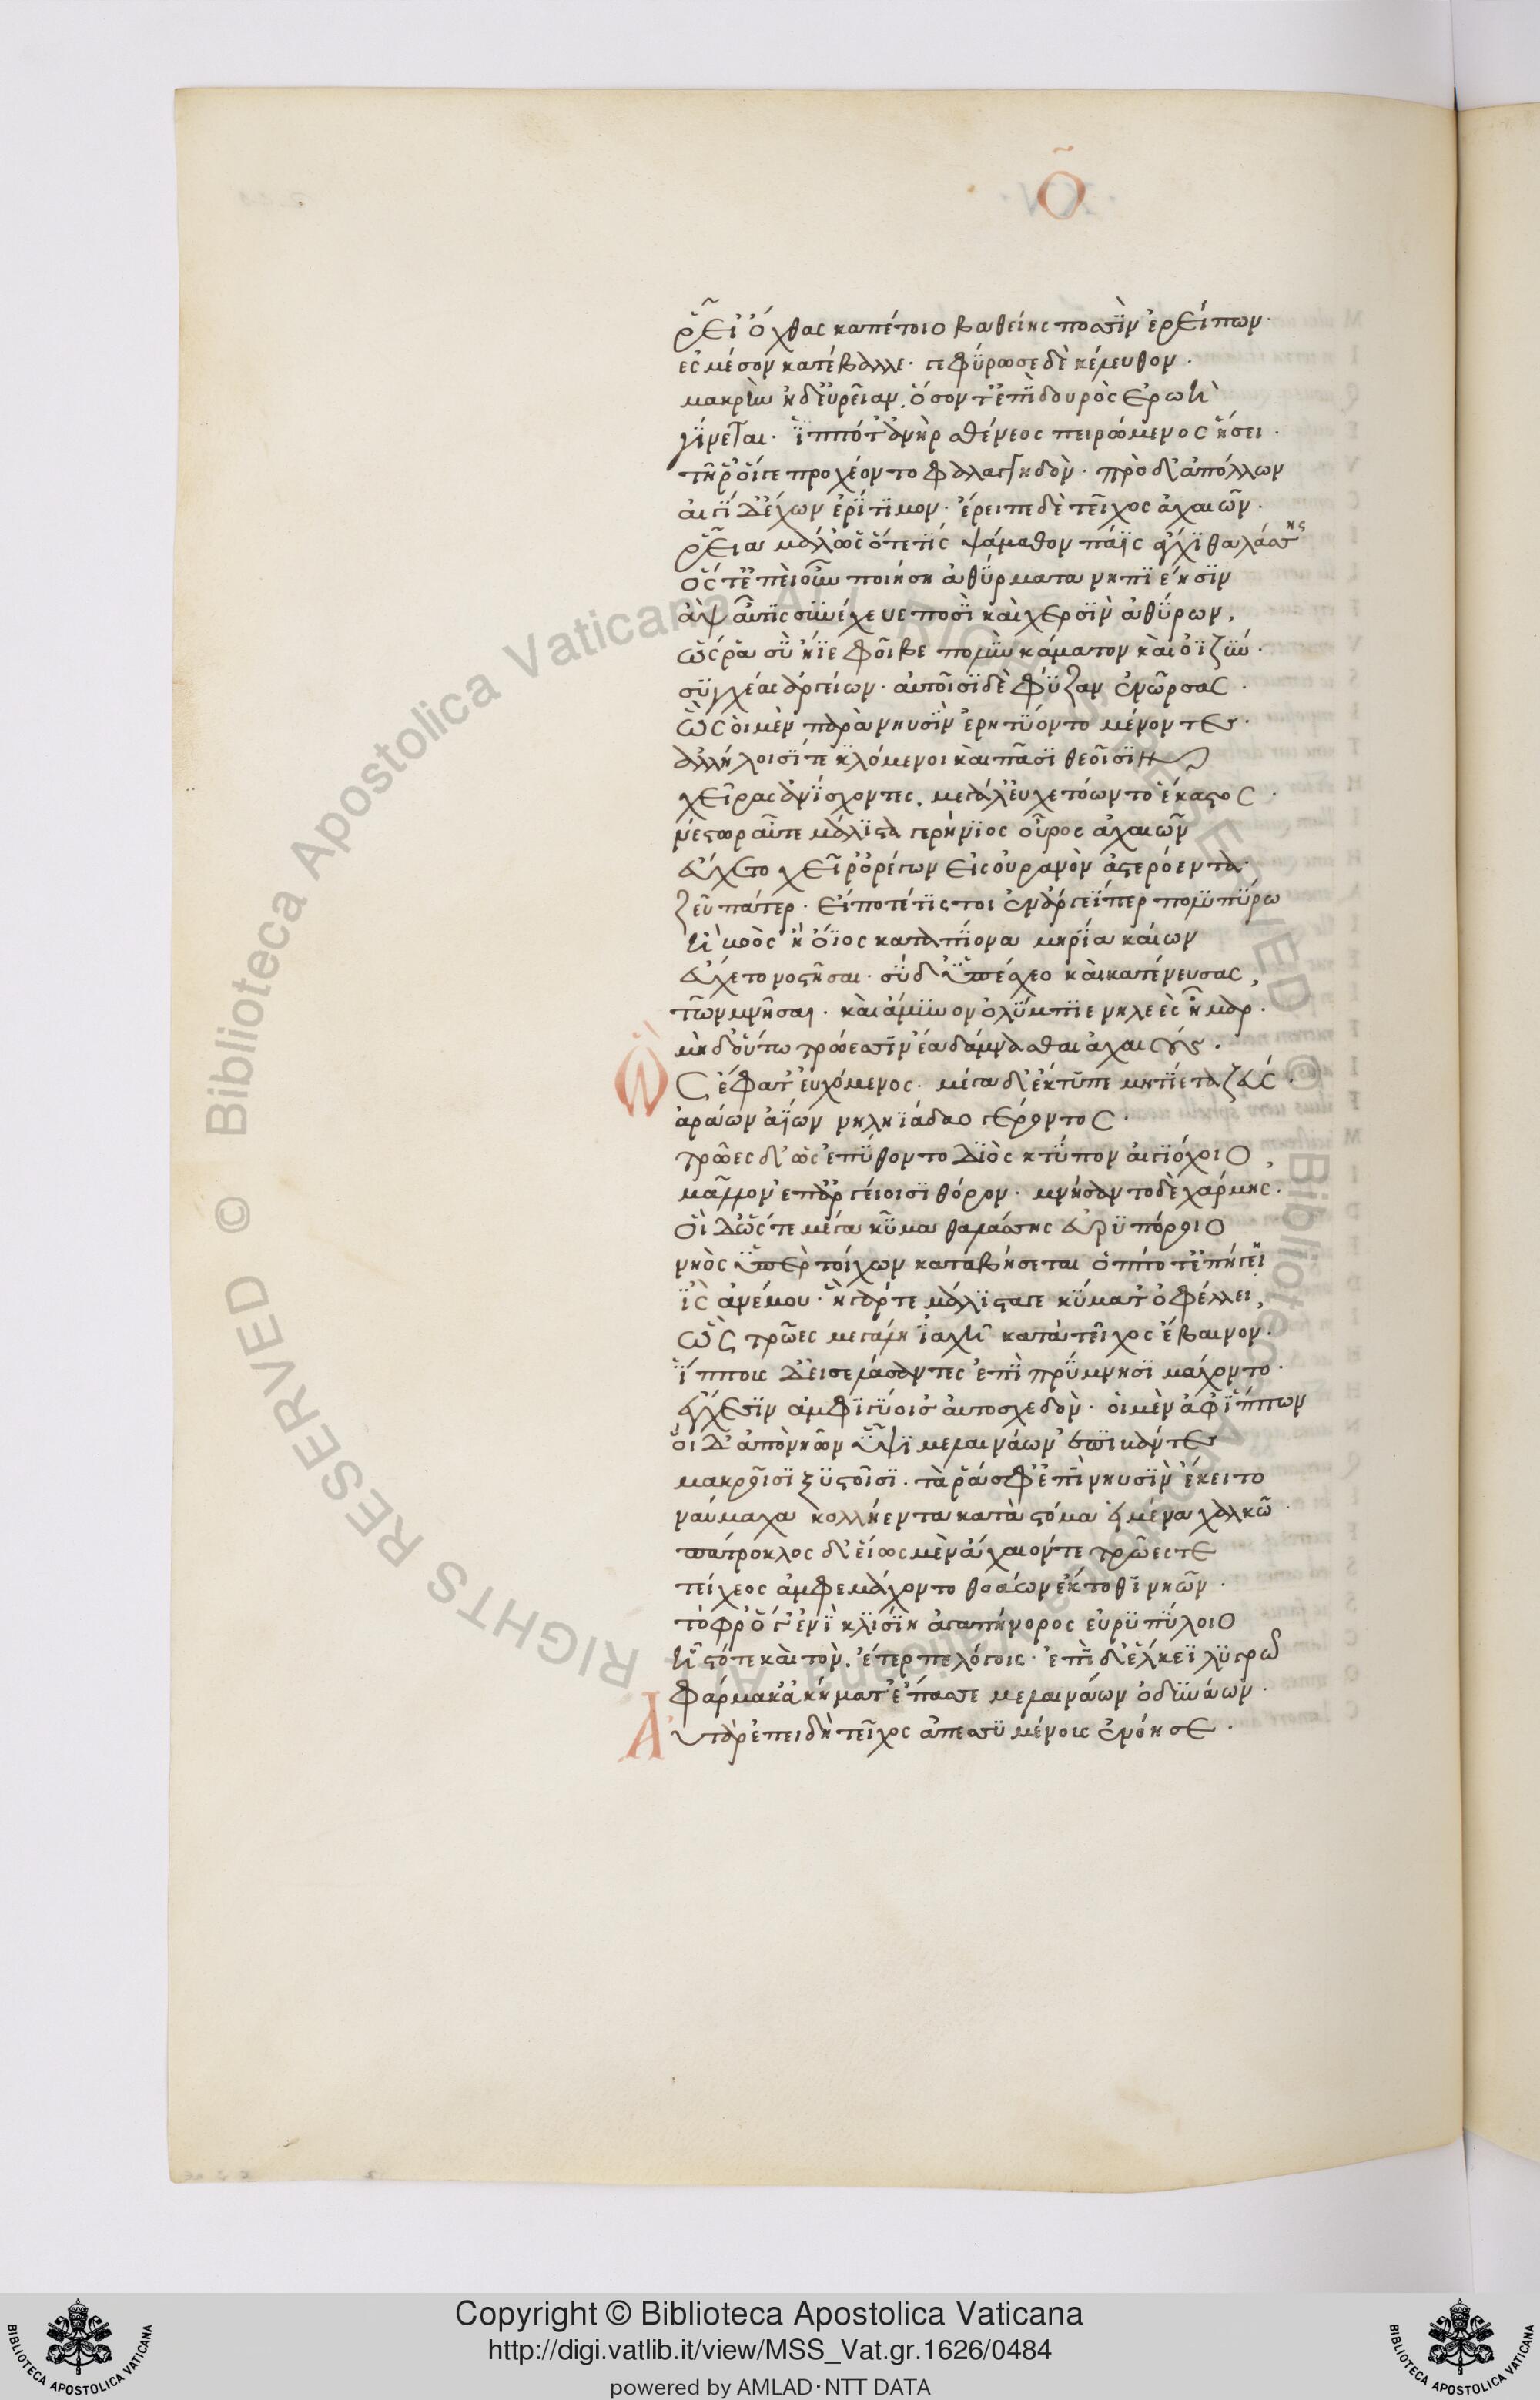 Ὁ
ῥεῖ ὄχθας καπέτοιο βαθείης ποσσὶν ἐρείπων·
ἐς μέσον κατέβαλλε· γεφύρωσε δὲ κέλευθον·
μακρὴν ἠδ' εὐρεῖαν. ὅσον τ' ἐπὶ δουρὸς ἐρωὴ
γίνεται· ἱππότ' ἀνὴρ σθένεος πειρώμενος ἥσει·
τῇ ῥ' οἵγε προχέοντο φαλαγγηδὸν· πρὸ δ' ἀπόλλων
αἰγίδ' ἔχων ἐρίτιμον· ἔρειπε δὲ τεῖχος ἀχαιῶν·
ῥεῖα μάλ' ὡς ὅτε τις ψάμαθον πάϊς ἄγχι θαλάσσης
ὅς τ' ἐπεὶ οὖν ποιήση ἀθύρματα νηπιέησιν
ἂψ αὖτις συνέχευε ποσὶ καὶ χερσὶν ἀθύρων,
ὥς ῥα σὺ ἤϊε φοῖβε πολὺν κάματον καὶ ὀϊζὺν·
σύγχεας ἀργείων· αὐτοῖσι δὲ φύζαν ἐνῶρσας·
ὣς οἱ μὲν παρὰ νηυσὶν ἐρητύοντο μένοντες·
ἀλλήλοισί τε κεκλόμενοι καὶ πᾶσι θεοῖσιν
χεῖρας ἀνίσχοντες. μεγάλ' εὐχετόωντο ἕκαστος·
νέστωρ αὖτε μάλιστα γερήνιος οὖρος ἀχαιῶν
εὔχετο χεῖρ' ὀρέγων εἰς οὐρανὸν ἀστερόεντα·
ζεῦ πάτερ· εἴποτέ τίς τοι ἐν ἄργεΐ περ πολυπύρω
ἢ βοὸς ἢ ὄϊος κατὰ πίονα μηρία καίων
εὔχετο νοστῆσαι· σὺ δ' ὑπέσχεο καὶ κατένευσας,
τῶν μνῆσαι· καὶ ἄμυνον ὀλύμπιε νηλεὲς ἦμαρ·
μὴ δ' οὕτω τρώεσσιν ἔα δάμνασθαι ἀχαιούς·
Ὣς ἔφατ' εὐχόμενος· μέγα δ' ἔκτυπε μητίετα ζεύς·
ἀράων ἀϊών νηληϊάδαο γέροντος·
τρῶες δ' ὡς ἐπύθοντο διὸς κτύπον αἰγιόχοιο,
μᾶλλον ἐπ' ἀργείοισι θόρον· μνήσαντο δὲ χάρμης·
οἱ δ' ὥς τε μέγα κῦμα θαλάσσης εὐρυπόροιο
νηὸς ὑπὲρ τοίχων καταβήσεται ὁππότ' ἐπήγει
ἲς ἀνέμου· ἥ γάρ τε μάλιστά γε κύματ' ὀφέλλει,
ὣς τρῶες μεγάλη ἰαχῇ κατὰ τεῖχος ἔβαινον·
ἵππους δ' εἰσελάσαντες ἐπὶ πρύμνησι μάχοντο·
ἔγχεσιν ἀμφιγύοισ' αὐτοσχεδὸν· οἱ μὲν ἀφ' ἵππων
οἱ δ' ἀπὸ νηῶν ὕψι μελαινάων ἐπιβάντες
μακροῖσι ξυστοῖσι. τά ῥά σφ' ἐπὶ νηυσὶν ἔκειτο
ναύμαχα κολλήεντα κατὰ στόμα εἱμένα χαλκῶ·
πάτροκλος δ' εἵως μὲν ἀχαιοί τε τρῶές τε
τείχεος ἀμφεμάχοντο θοάων ἔκτοθι νηῶν·
τόφρ' ὅγ' ἐνὶ κλισίη ἀγαπήνορος εὐρυπύλοιο
ἧστό τε καὶ τὸν. ἔτερπε λόγοις· ἐπὶ δ' ἕλκεϊ λυγρῶ
φάρμακ' ἀκήματ' ἔπασσε μελαινάων ὀδυνάων·
Αὐτὰρ ἐπειδὴ τεῖχος ἐπεσσυμένους ἐνόησε·
Copyright © Biblioteca Apostolica Vaticana
http://digi.vatlib.it/view/MSS_Vat.gr.1626/0484
powered by AMLAD·NTT DATA